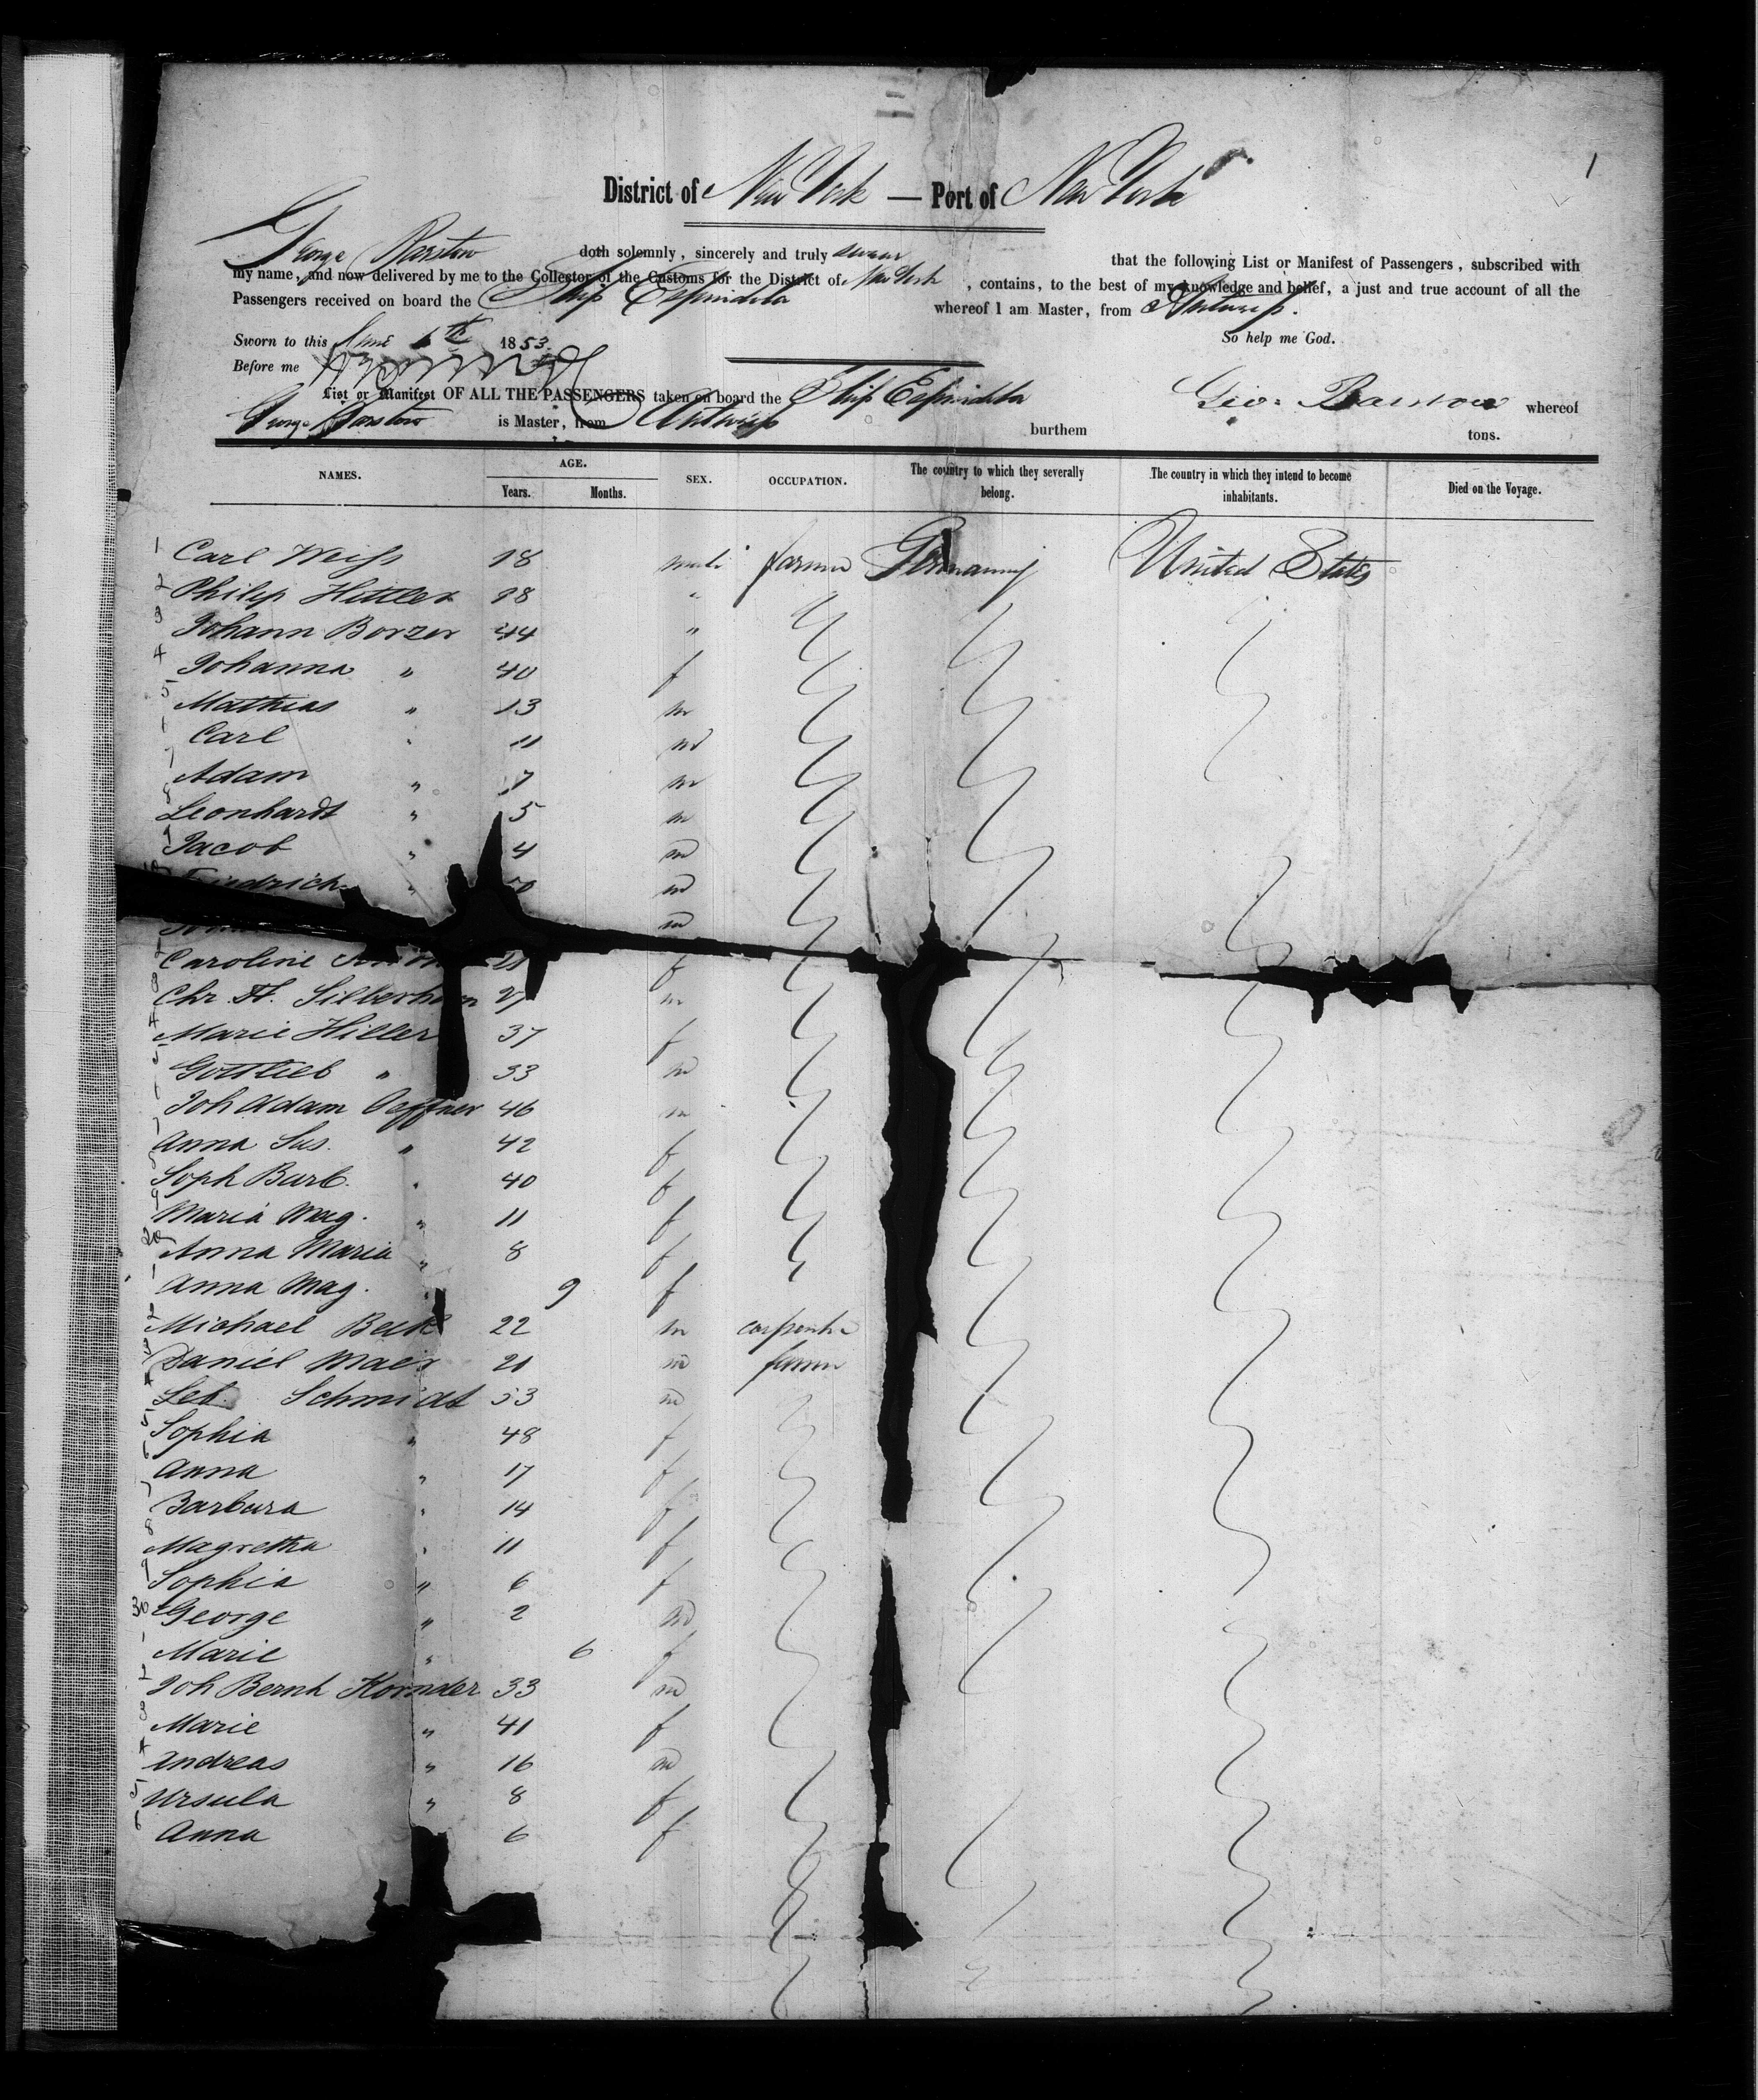 1
District of New York — Port of New York
George Barstow doth solemnly, sincerely and truly swear that the following List or Manifest of Passengers, subscribed with
my name, and now delivered by me to the Collector of the Customs for the District of New York, contains, to the best of my knowledge and belief, a just and true account of all the
Passengers received on board the Ship Espindola whereof I am Master, from Antwerp.
Sworn to this June 6th 1853. So help me God.
Before me
List or Manifest OF ALL THE PASSENGERS taken on board the Ship Espindola Geo. Barstow whereof
George Barstow is Master, from Antwerp burthem tons.
NAMES. AGE. Years. Months. SEX. OCCUPATION. The country to which they severally belong. The country in which they intend to become inhabitants. Died on the Voyage.
1 Carl Weiss 18 male farmer Germany United States
2 Philip Hittler 18 "
3 Johann Borzer 44 "
4 Johanna " 40 f
5 Mathias " 13 m
Carl " 11 m
7 Adam " 7 m
8 Leonhardt " 5 m
9 Jacob " 4 m
10 Friedrich " m
m
2 Caroline 21 f
3 Chr. Silberhorn 27 m
4 Marie Hiller 37 f
5 Gottlieb " 33 m
Joh Adam Oeffner 46 m
7 Anna Sus. " 42 f
Soph Barb. " 40 f
9 Maria Mag. " 11 f
20 Anna Maria " 8 f
1 Anna Mag. " 9 f
2 Michael Beck 22 m carpenter
3 Daniel Maer 21 m farmer
4 Leb. Schmidt 53 m
5 Sophia " 48 f
6 Anna " 17 f
7 Barbara " 14 f
8 Magretha " 11 f
9 Sophia " 6 f
30 George " 2 m
1 Marie " 6 f
2 Joh Bernh Kornder 33 m
3 Marie " 41 f
4 Andreas " 16 m
5 Ursula " 8 f
6 Anna 6 f